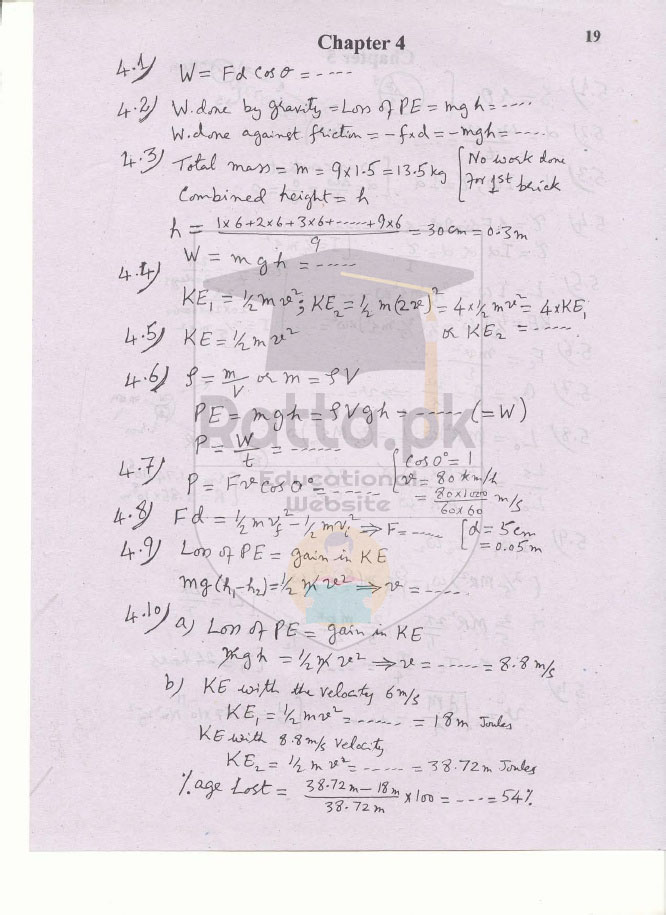 Chapter 4
19
4.1) W = Fd cos θ = -----
4.2) W.done by gravity = Loss of PE = mgh = -----
W.done against friction = -f×d = -mgh = -----
4.3) Total mass = m = 9×1.5 = 13.5 kg [No work done
Combined height = h for 1st brick
h = (1×6+2×6+3×6+-----+9×6)/9 = 30 cm = 0.3 m
W = mgh = -----
4.4) KE₁ = ½mv²; KE₂ = ½m(2v)² = 4×½mv² = 4×KE₁
or KE₂ = -----
4.5) KE = ½mv²
4.6) ρ = m/V or m = ρV
PE = mgh = ρVgh = ----- (=W)
P = W/t = ------
4.7) P = Fv cos 0° = ------ {cos 0° = 1
v = 80 km/h
= (80×1000)/(60×60) m/s
4.8) Fd = ½mv_f² - ½mv_i² ⇒ F = ---- [d = 5cm
= 0.05 m
4.9) Loss of PE = gain in KE
mg(h₁-h₂) = ½mv² ⇒ v = -----
4.10) a) Loss of PE = gain in KE
mgh = ½mv² ⇒ v = ----- = 8.8 m/s
b) KE with the velocity 6 m/s
KE₁ = ½mv² = ------ = 18m Joules
KE with 8.8 m/s velocity
KE₂ = ½mv² = ----- = 38.72m Joules
%age Lost = (38.72m - 18m)/38.72m × 100 = ---- = 54%
Ratta.pk
Educational
Website